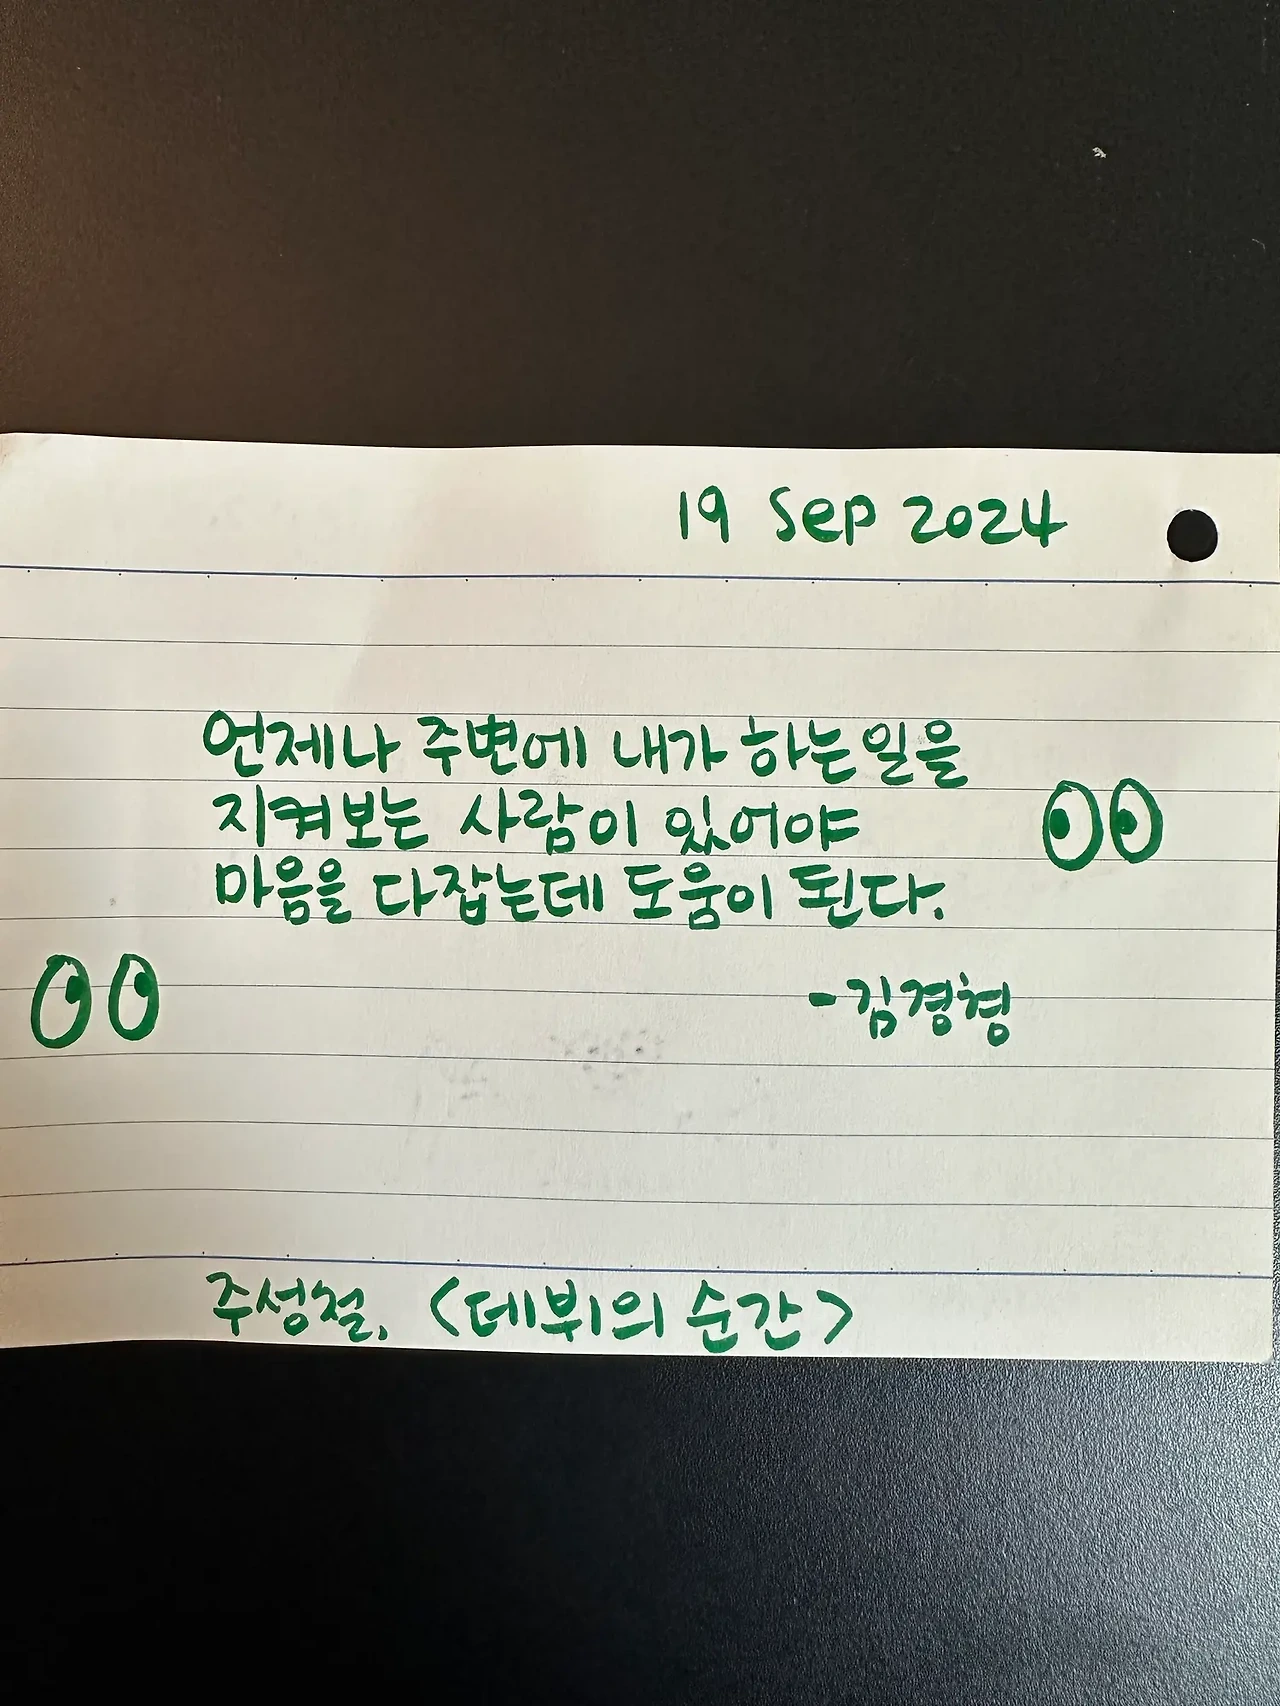 19 Sep 2024
언제나 주변에 내가 하는 일을
지켜보는 사람이 있어야
마음을 다잡는데 도움이 된다.
-김경형
주성철, <데뷔의 순간>